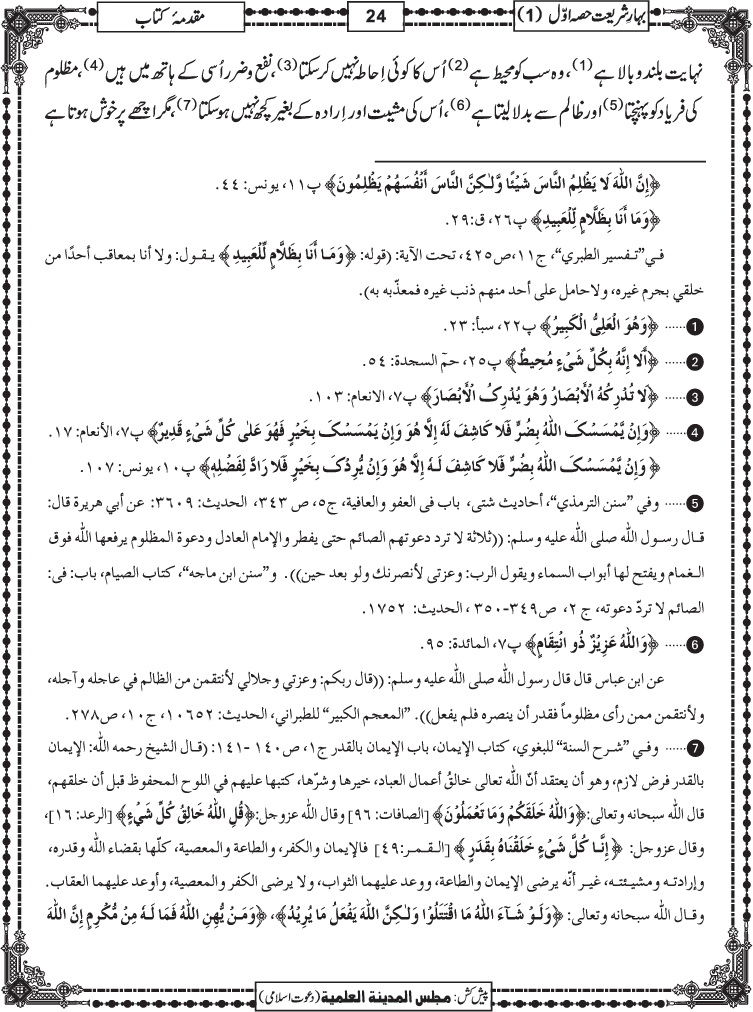 بہار شریعت حصہ اوّل (1)
24
مقدمۂ کتاب
نہایت بلند و بالا ہے (1)، وہ سب کو محیط ہے (2) اُس کا کوئی اِحاطہ نہیں کر سکتا (3)، نفع و ضرر اُسی کے ہاتھ میں ہیں (4)، مظلوم
کی فریاد کو پہنچتا (5) اور ظالم سے بدلا لیتا ہے (6)، اُس کی مشیت اور اِرادہ کے بغیر کچھ نہیں ہو سکتا (7)، مگر اچھے پر خوش ہوتا ہے
﴿إِنَّ اللّٰهَ لَا يَظْلِمُ النَّاسَ شَيْئًا وَّلٰـكِنَّ النَّاسَ أَنْفُسَهُمْ يَظْلِمُونَ﴾ پ۱۱، یونس: ۴۴.
﴿وَمَا أَنَا بِظَلَّامٍ لِّلْعَبِيدِ﴾ پ۲۶، ق: ۲۹.
في ”تفسير الطبري“، ج۱۱، ص۴۲۵، تحت الآية: (قوله: ﴿وَمَا أَنَا بِظَلَّامٍ لِّلْعَبِيدِ﴾ يقول: ولا أنا بمعاقب أحدًا من
خلقي بجرم غيره، ولاحامل على أحد منهم ذنب غيره فمعذّبه به).
1 ...... ﴿وَهُوَ الْعَلِيُّ الْكَبِيرُ﴾ پ۲۲، سبأ: ۲۳.
2 ...... ﴿أَلَا إِنَّهُ بِكُلِّ شَيْءٍ مُحِيطٌ﴾ پ۲۵، حمٓ السجدة: ۵۴.
3 ...... ﴿لَا تُدْرِكُهُ الْأَبْصَارُ وَهُوَ يُدْرِكُ الْأَبْصَارَ﴾ پ۷، الانعام: ۱۰۳.
4 ...... ﴿وَإِنْ يَّمْسَسْكَ اللّٰهُ بِضُرٍّ فَلَا كَاشِفَ لَهُ إِلَّا هُوَ وَإِنْ يَمْسَسْكَ بِخَيْرٍ فَهُوَ عَلٰى كُلِّ شَيْءٍ قَدِيرٌ﴾ پ۷، الأنعام: ۱۷.
﴿وَإِنْ يَّمْسَسْكَ اللّٰهُ بِضُرٍّ فَلَا كَاشِفَ لَـهُ إِلَّا هُوَ وَإِنْ يُرِدْكَ بِخَيْرٍ فَلَا رَادَّ لِفَضْلِهٖ﴾ پ۱۰، یونس: ۱۰۷.
5 ...... وفي ”سنن الترمذي“، أحاديث شتى، باب في العفو والعافية، ج۵، ص ۳۴۳، الحديث: ۳۶۰۹: عن أبي هريرة قال:
قـال رسـول اللّٰه صلى اللّٰه عليه وسلم: ((ثلاثة لا ترد دعوتهم الصائم حتى يفطر والإمام العادل ودعوة المظلوم يرفعها اللّٰه فوق
الـغمام ويفتح لها أبواب السماء ويقول الرب: وعزتي لأنصرنك ولو بعد حين)). و”سنن ابن ماجه“، كتاب الصيام، باب: في:
الصائم لا تردّ دعوته، ج ۲، ص۳۴۹-۳۵۰، الحديث: ۱۷۵۲.
6 ...... ﴿وَاللّٰهُ عَزِيزٌ ذُو انْتِقَامٍ﴾ پ۷، المائدة: ۹۵.
عن ابن عباس قال قال رسول اللّٰه صلى اللّٰه عليه وسلم: ((قال ربكم: وعزتي وجلالي لأنتقمن من الظالم في عاجله وآجله،
ولأنتقمن ممن رأى مظلوماً فقدر أن ينصره فلم يفعل)). ”المعجم الكبير“ للطبراني، الحديث: ۱۰۶۵۲، ج۱۰، ص۲۷۸.
7 ...... وفي ”شرح السنة“ للبغوي، كتاب الإيمان، باب الإيمان بالقدر ج۱، ص۱۴۰ -۱۴۱: (قـال الشيخ رحمه اللّٰه: الإيمان
بالقدر فرض لازم، وهو أن يعتقد أنّ اللّٰه تعالى خالقُ أعمال العباد، خيرها وشرّها، كتبها عليهم في اللوح المحفوظ قبل أن خلقهم،
قال اللّٰه سبحانه وتعالى: ﴿وَاللّٰهُ خَلَقَكُمْ وَمَا تَعْمَلُوْنَ﴾ [الصافات: ۹۶] وقال اللّٰه عزوجل: ﴿قُلِ اللّٰهُ خَالِقُ كُلِّ شَيْءٍ﴾ [الرعد: ۱۶]،
وقال عزوجل: ﴿إِنَّـا كُلَّ شَيْءٍ خَلَقْنَاهُ بِقَدَرٍ﴾ [الـقـمـر: ۴۹] فالإيمان والكفر، والطاعة والمعصية، كلّها بقضاء اللّٰه وقدره،
وإرادتـه ومشيـئتـه، غيـر أنّه يرضى الإيمان والطاعة، ووعد عليهما الثواب، ولا يرضى الكفر والمعصية، وأوعد عليهما العقاب.
وقـال اللّٰه سبحانه وتعالى: ﴿وَلَـوْ شَـآءَ اللّٰهُ مَا اقْتَتَلُوْا وَلٰـكِنَّ اللّٰهَ يَفْعَلُ مَا يُرِيْدُ﴾، ﴿وَمَـنْ يُّهِنِ اللّٰهُ فَمَا لَـهُ مِنْ مُّكْرِمٍ إِنَّ اللّٰهَ
پیش کش: مجلس المدينة العلمية (دعوت اسلامی)